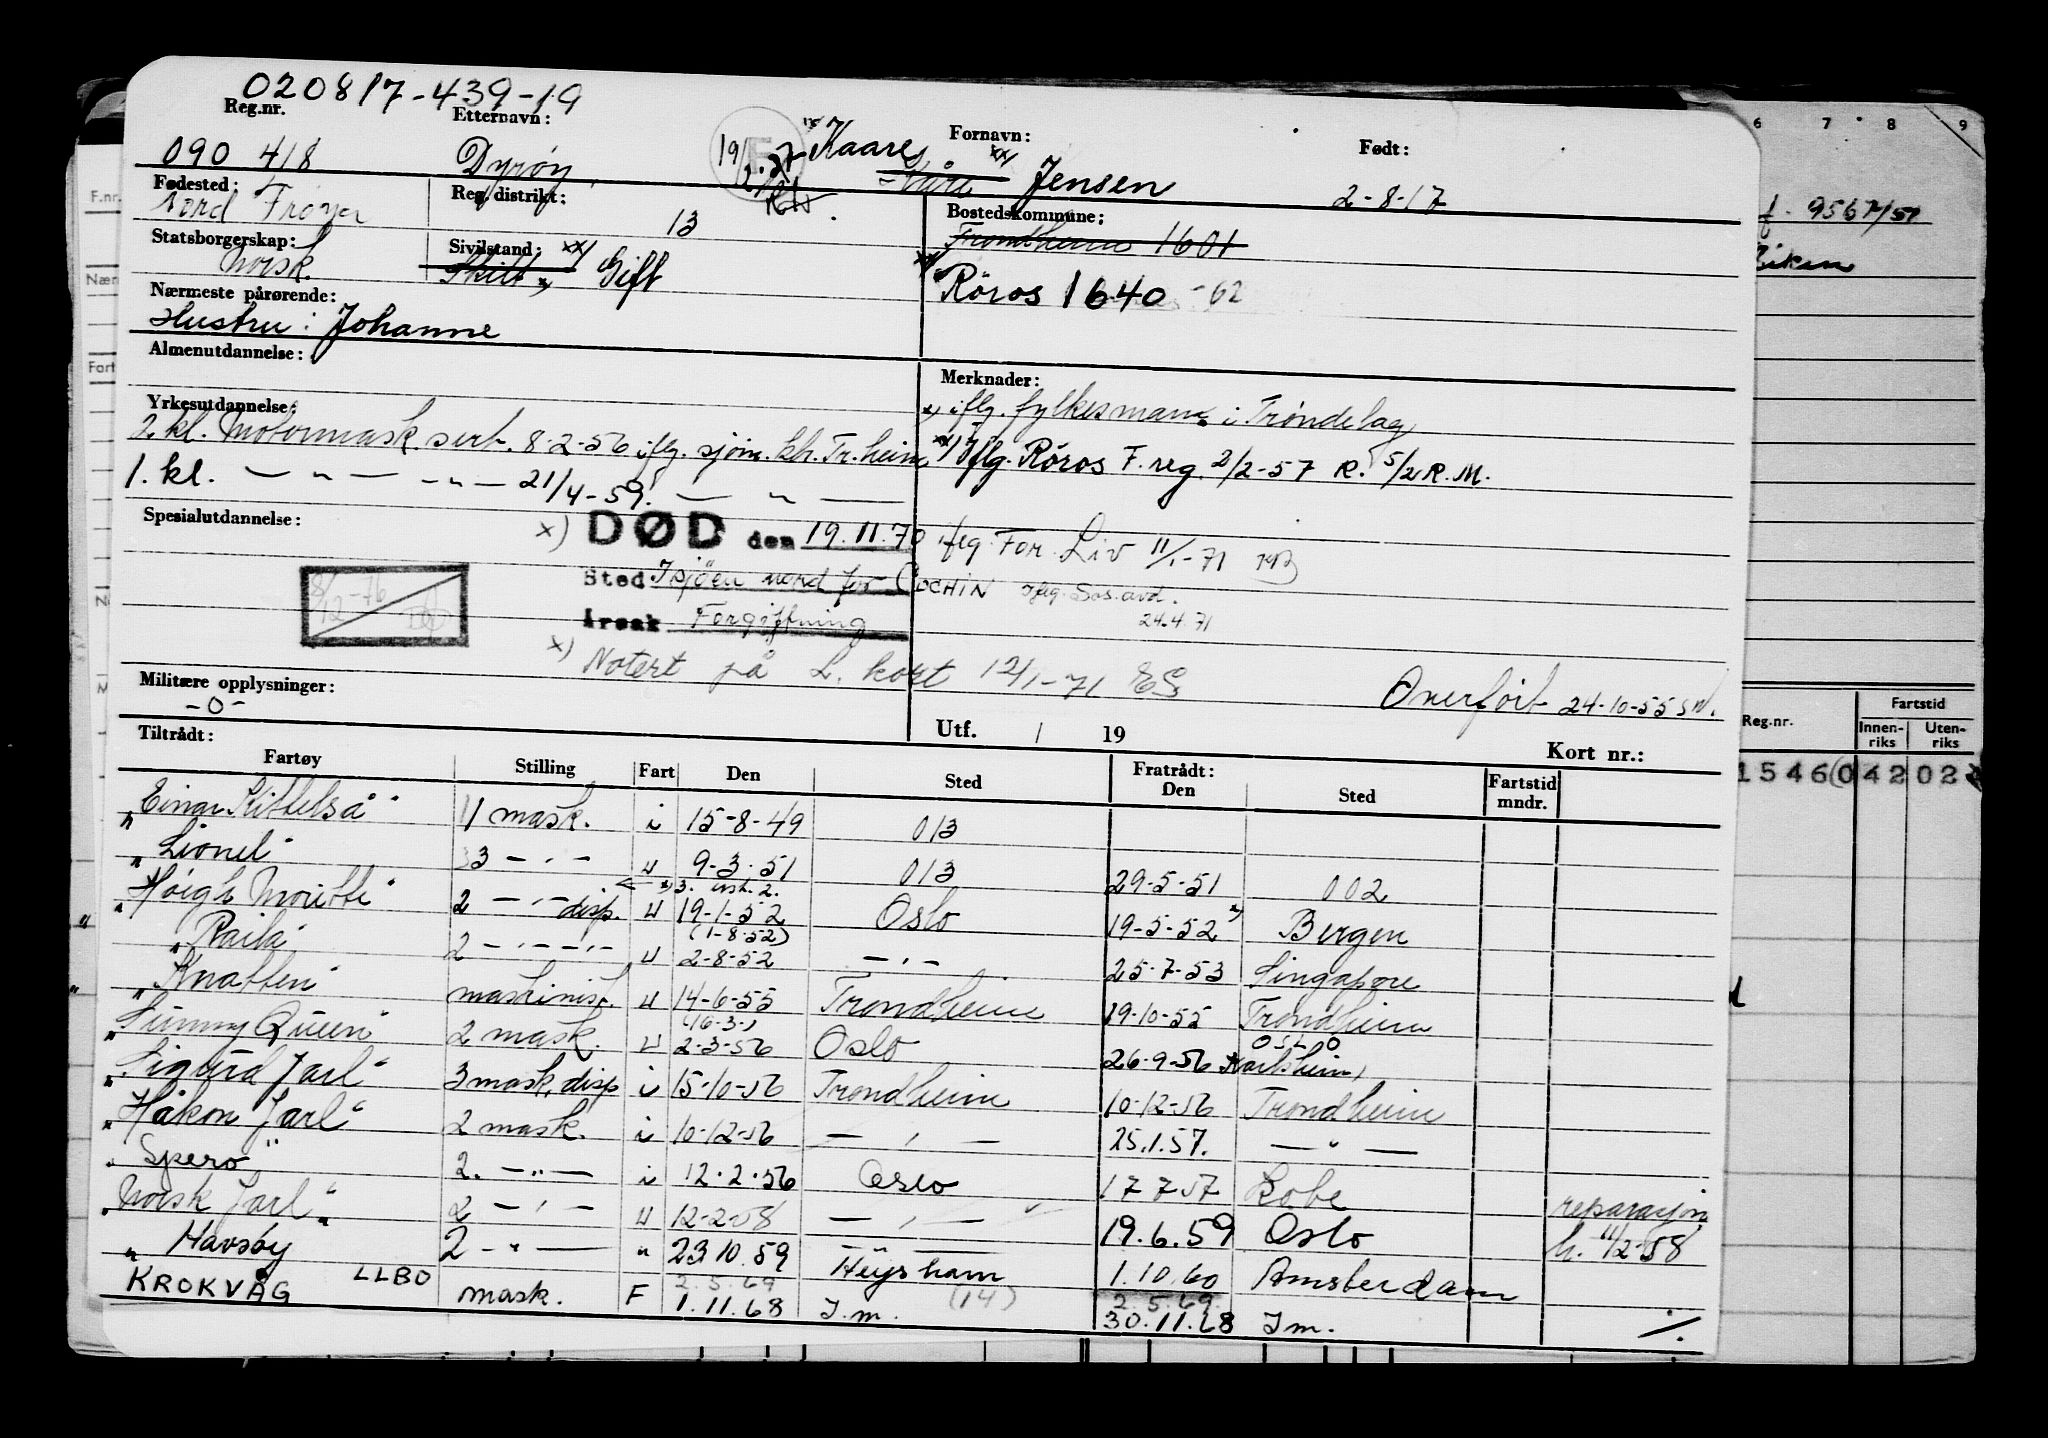 020817-439-19
Reg.nr. Etternavn: Fornavn: Født:
090 418 Dyrøy, 19/2.57 Kaare, Jensen 2-8-17
Fødested: Reg. distrikt: Bostedskommune:
Nord Frøya 13 Trondheim 1601
Statsborgerskap: Sivilstand:
Norsk Skilt xx/ Gift Röros 1640 -62
Nærmeste pårørende:
Hustru: Johanne
Almenutdannelse: Merknader:
x) iflg. fylkesmann i Trøndelag
Yrkesutdannelse:
2. kl. Motormask. sert. 8-2-56 iflg. sjøm. kh. Tr.heim xx) Iflg. Röros F. reg. 2/2-57 R. 5/2 R.M.
1. kl. — " — — " — 21/4-59. — " —
Spesialutdannelse: x) DØD den 19.11.70 ifeg. For. Liv 11/1-71
8/12-76 Sted I sjøen nord for COCHIN Iflg. Sos. avd. 24.4.71
Årsak Forgiftning
x) Notert på L. kort 12/1-71 ES
Militære opplysninger: Overført 24-10-55 SN.
-0-
Tiltrådt: Utf. / 19 Kort nr.:
Fartøy Stilling Fart Den Sted Fratrådt: Den Sted Fartstid mndr.
"Einar Kittelså" 1 mask. i 15-8-49 013
"Lionel" 3 — " — u 9-3-51 013 29-5-51 002
"Høigh Merette" 2 — " — disp. u 19-1-52 Oslo 19-5-52 x) Bergen
"Raila" 2 — " — " — u (1-8-52) 2-8-52 — " — 25-7-53 Singapore
"Knatten" maskinist. u 14-6-55 Trondheim 19-10-55 Trondheim
"Sunny Queen" 2 mask. u (16-3-) 2-3-56 Oslo 26-9-56 OSLO
"Sigurd Jarl" 3 mask. disp i 15-10-56 Trondheim 10-12-56 Trondheim
"Håkon Jarl" 2 mask. i 10-12-56 — " — 25.1.57. — " —
"Spero" 2. — " — i 12.2.56 Oslo 17 7-57 Kobe reparasjon
"Norsk Jarl" 2 — " — u 12-2-58 — " — 19.6.59 Oslo h. 11/2-58
" Havsby 2 — " — " 23.10.59 Heysham 1.10.60 Amsterdam
KROKVÅG LLBO mask. F 2.5.69 1.11.68 I.m. (14) 2.5.69 30.11.68 I m. ./.
6 7 8 9
f. 9567/51
F.nr.
Nær
Fart
Reg.nr. Fartstid
Innenriks Utenriks
15460 42 02